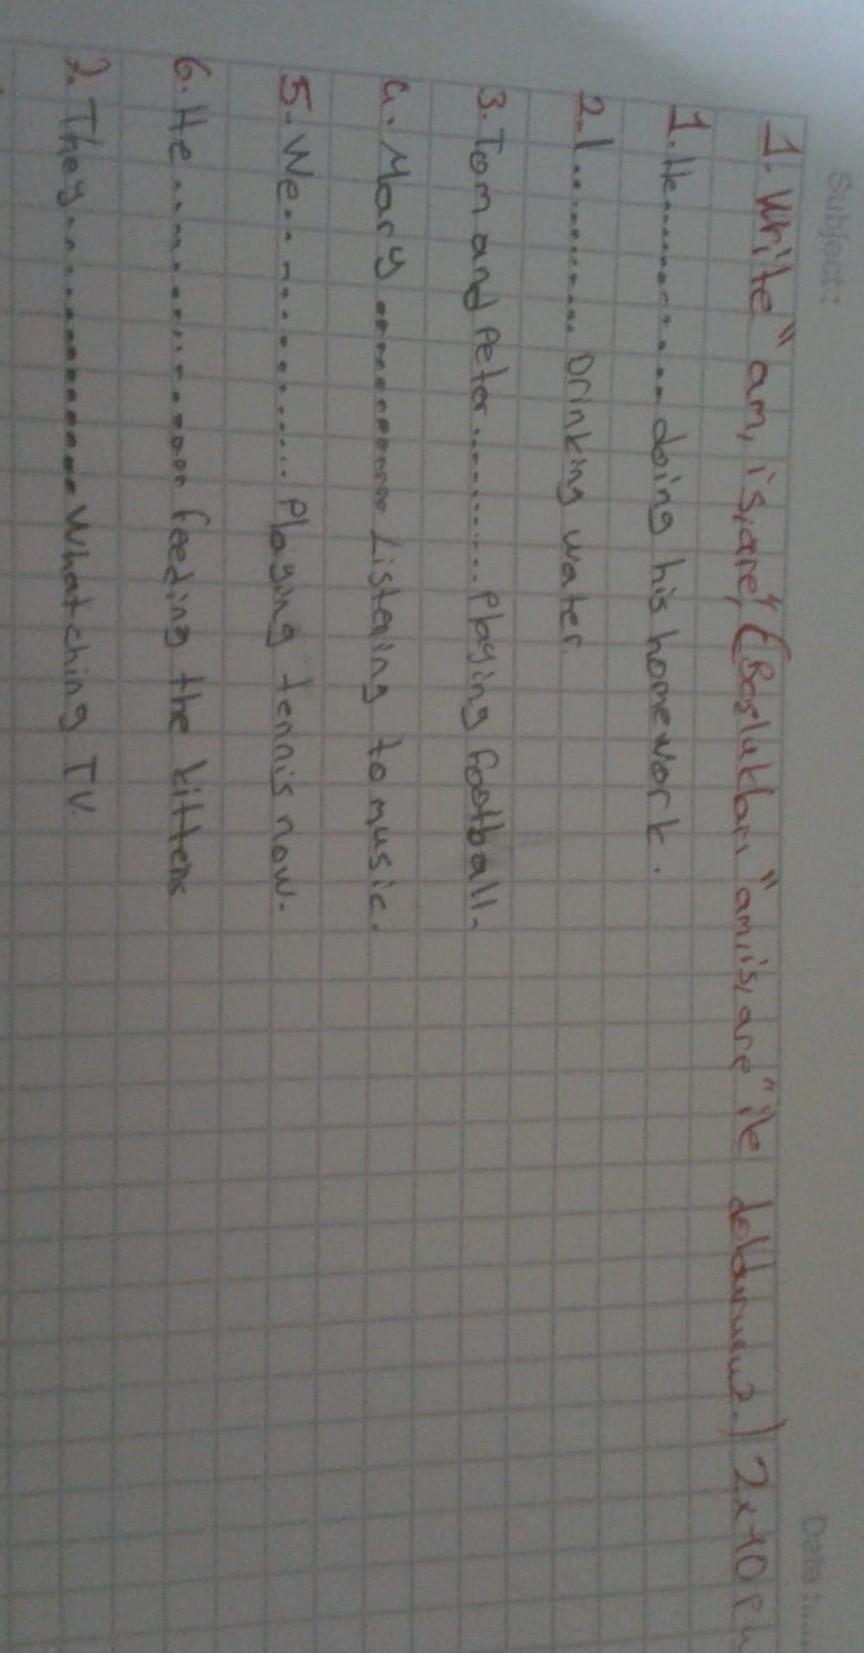 Subject: Date:......
1. Write "am, is, are" (Boşlukları "am, is, are" ile doldurunuz.) 2x10 Pu
1. He............ doing his homework.
2. I............ Drinking water.
3. Tom and Peter............ Playing football.
4. Mary............ Listening to music.
5. We............ Playing tennis now.
6. He............ feeding the kittens
7. They............ Whatching TV.